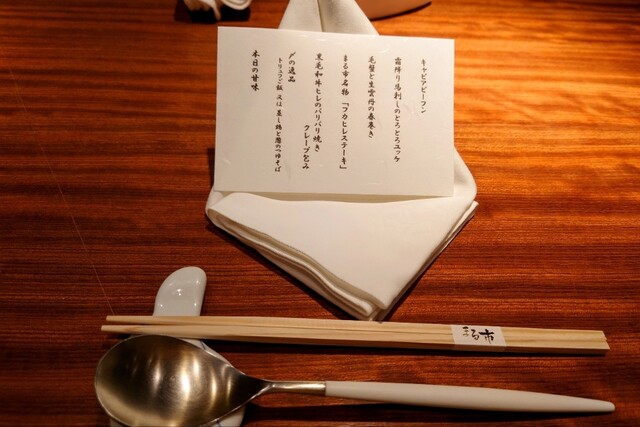 キャビアビーフン
霜降り馬刺しのとろとろユッケ
毛蟹と生雲丹の春巻き
まる市名物「フカヒレステーキ」
黒毛和牛ヒレのパリパリ焼き
クレープ包み
〆の逸品
トリュフご飯 又は 蒸し鶏と葱のつゆそば
本日の甘味
まる市